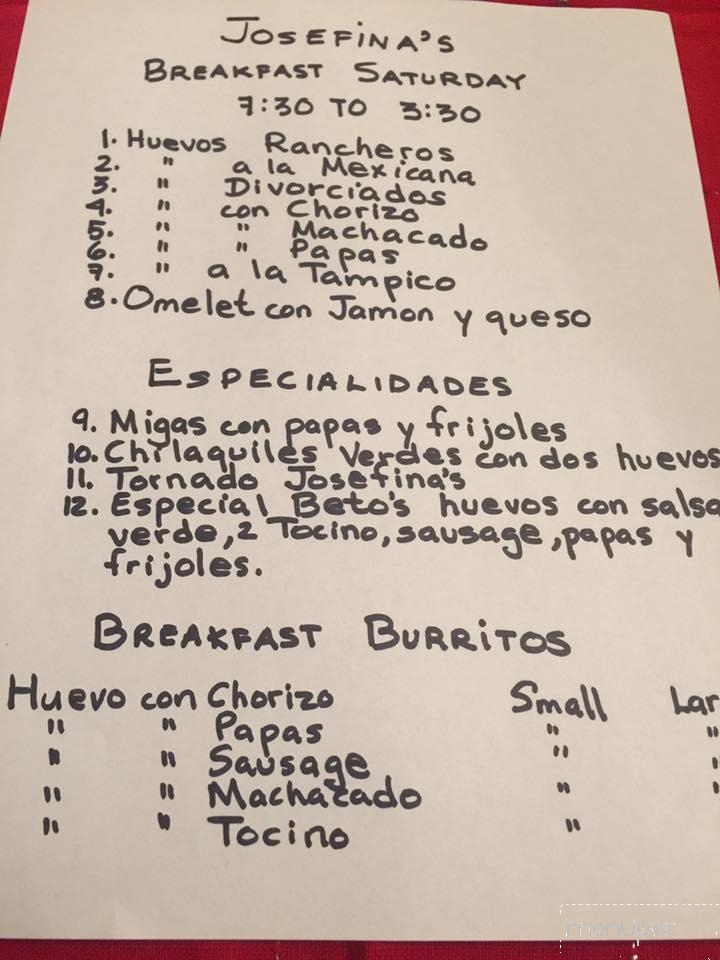 JOSEFINA'S
BREAKFAST SATURDAY
7:30 TO 3:30
1. Huevos Rancheros
2. " a la Mexicana
3. " Divorciados
4. " con Chorizo
5. " " Machacado
6. " " Papas
7. " a la Tampico
8. Omelet con Jamon y queso
ESPECIALIDADES
9. Migas con papas y frijoles
10. Chilaquiles Verdes con dos huevos
11. Tornado Josefina's
12. Especial Beto's huevos con salsa
verde, 2 Tocino, sausage, papas y
frijoles.
BREAKFAST BURRITOS
Huevo con Chorizo Small Lar
" " Papas " "
" " Sausage " "
" " Machacado " "
" " Tocino "
menupix